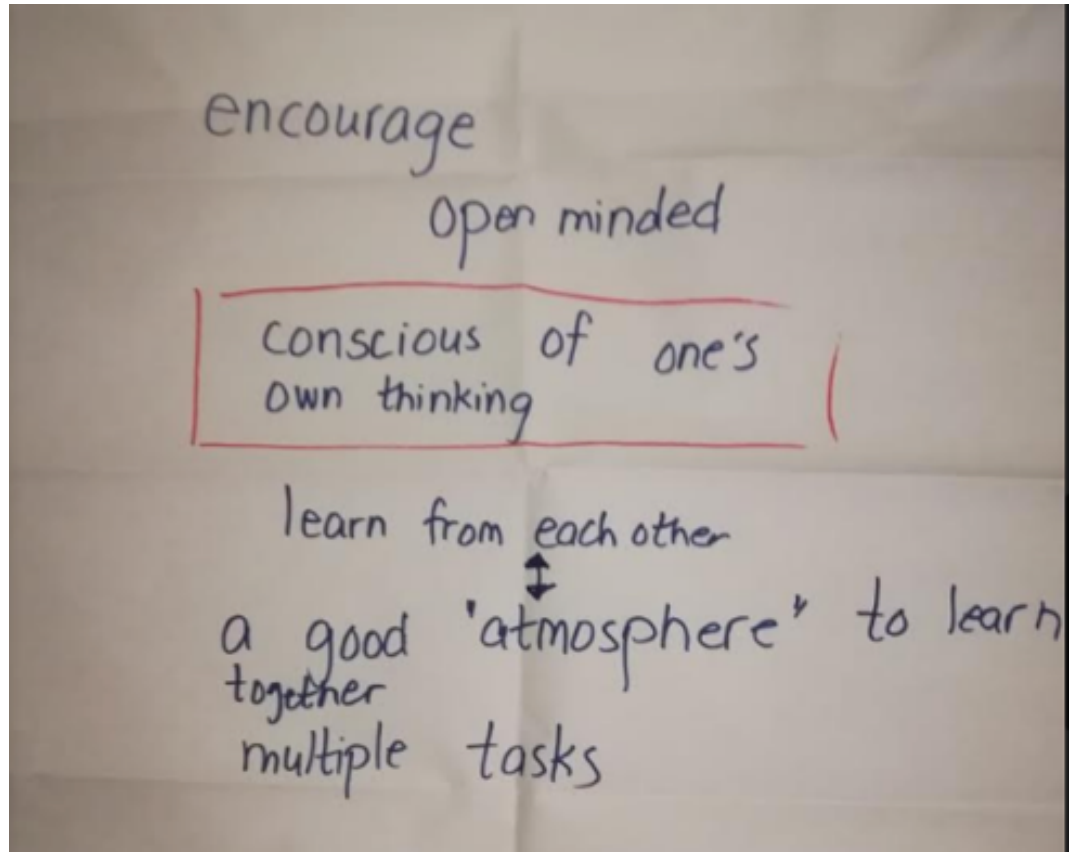 encourage
open minded
conscious of one's
own thinking
learn from each other
a good 'atmosphere" to learn
together
multiple tasks